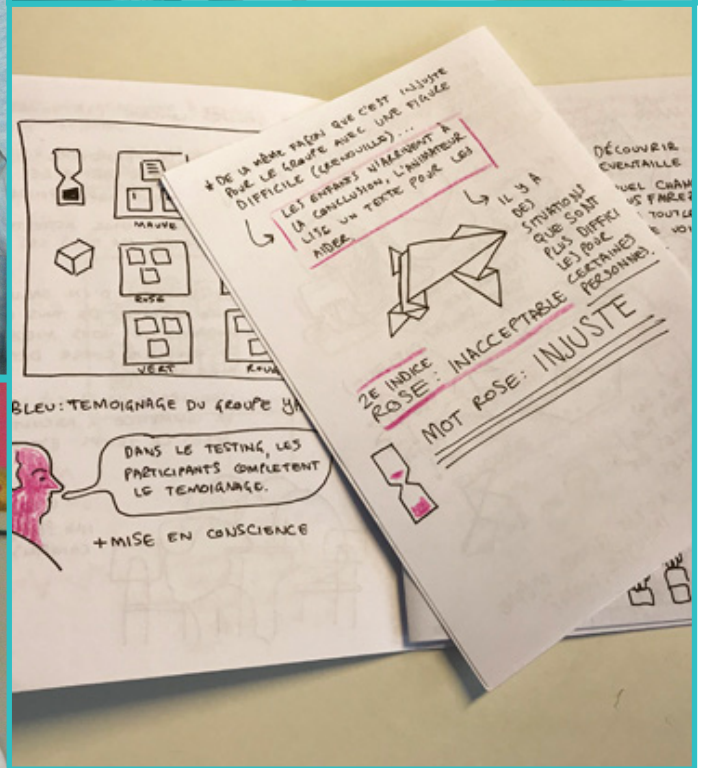 MAUVE
ROSE
VERT
BLEU: TEMOIGNAGE DU GROUPE
DANS LE TESTING, LES
PARTICIPANTS COMPLETENT
LE TEMOIGNAGE.
+ MISE EN CONSCIENCE
* DE LA MÊME FAÇON QUE C'EST INJUSTE
POUR LE GROUPE AVEC UNE FIGURE
DIFFICILE (GRENOUILLE)...
LES ENFANTS N'ARRIVENT À
LA CONCLUSION, L'ANIMATEUR
LISE UN TEXTE POUR LES
AIDER
IL Y A
DES
SITUATIONS
QUE SONT
PLUS DIFFICI
LES POUR
CERTAINES
PERSONNES.
2E INDICE
ROSE: INACCEPTABLE
MOT ROSE: INJUSTE
DÉCOUVRIR
EVENTAILLE